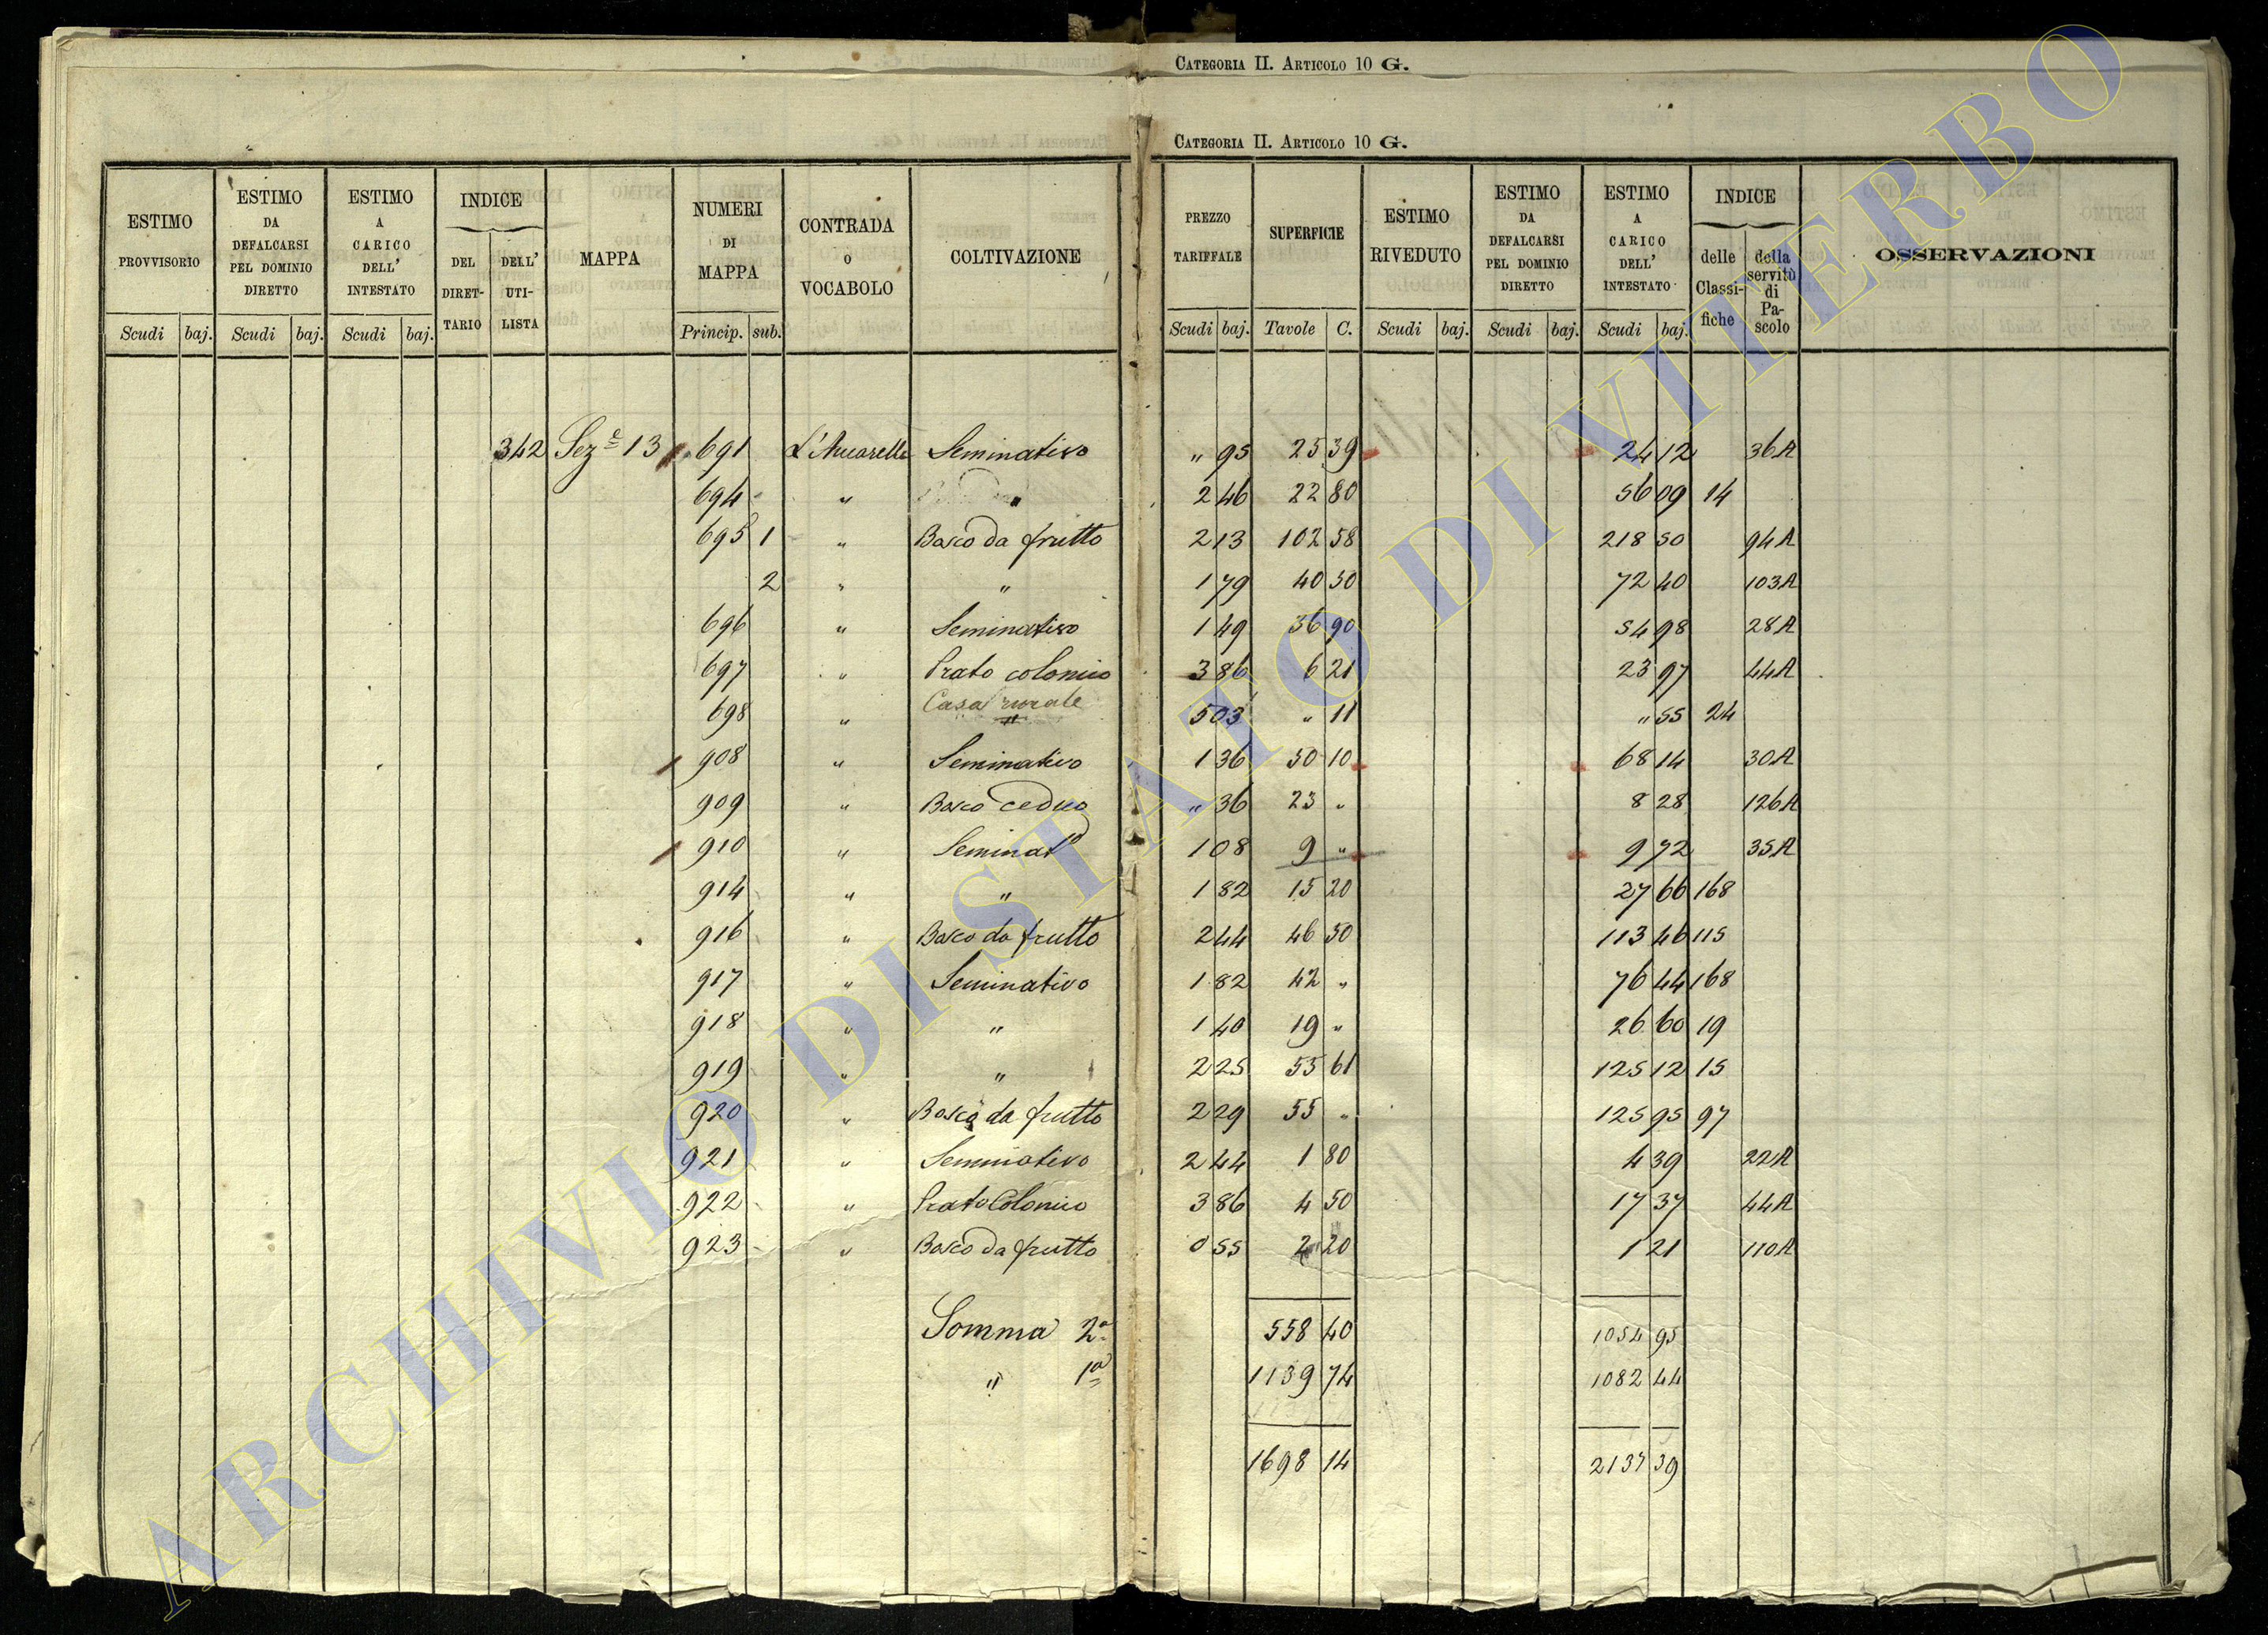 CATEGORIA II. ARTICOLO 10 G.
CATEGORIA II. ARTICOLO 10 G.
ESTIMO PROVVISORIO Scudi baj.
ESTIMO DA DEFALCARSI PEL DOMINIO DIRETTO Scudi baj.
ESTIMO A CARICO DELL' INTESTATO Scudi baj.
INDICE DEL DIRET-TARIO DELL' UTI-LISTA
MAPPA
NUMERI DI MAPPA Princip. sub.
CONTRADA O VOCABOLO
COLTIVAZIONE
PREZZO TARIFFALE Scudi baj.
SUPERFICIE Tavole C.
ESTIMO RIVEDUTO Scudi baj.
ESTIMO DA DEFALCARSI PEL DOMINIO DIRETTO Scudi baj.
ESTIMO A CARICO DELL' INTESTATO Scudi baj.
INDICE delle Classi-fiche della servitù di Pa-scolo
OSSERVAZIONI
342 Sez.e 13 691 Seminativo " 95 25 39 24 12 36A
694 " " 2 46 22 80 56 09 14
695 1 " Bosco da frutto 2 13 102 58 218 50 94A
2 " " 1 79 40 50 72 40 103A
696 " Seminativo 1 49 36 90 54 98 28A
697 " Prato colonico 3 86 6 21 23 97 44A
698 " Casa rurale 5 03 " 11 " 55 24
908 " Seminativo 1 36 50 10 68 14 30A
909 " Bosco ceduo " 36 23 " 8 28 126A
910 " Seminato 1 08 9 " 9 72 35A
914 " " 1 82 15 20 27 66 168
916 " Bosco da frutto 2 44 46 50 113 46 115
917 " Seminativo 1 82 42 " 76 44 168
918 " " 1 40 19 " 26 60 19
919 " " 2 25 55 61 125 12 15
920 " Bosco da frutto 2 29 55 " 125 95 97
921 " Seminativo 2 44 1 80 4 39 22A
922 " Prato Colonico 3 86 4 50 17 37 44A
923 " Bosco da frutto 0 55 2 20 1 21 110A
Somma 2a 558 40 1054 95
" 1a 1139 74 1082 44
1698 14 2137 39
ARCHIVIO DI STATO DI VITERBO